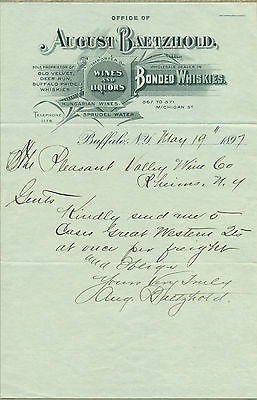 OFFICE OF
AUGUST BAETZHOLD,
SOLE PROPRIETOR OF
OLD VELVET,
DEER RUN,
BUFFALO PRIDE
WHISKIES
WINES AND LIQUORS
WHOLESALE DEALER IN
BONDED WHISKIES.
HUNGARIAN WINES.
567 TO 571
MICHIGAN ST.
TELEPHONE
SPRUDEL WATER.
Buffalo, N.Y. May 19" 1897
The Pleasant Valley Wine Co
Rheims, N.Y
Gents
Kindly send me 5
Cases Great Western Qts
at once per freight
and Oblige
Yours Very Truly
Aug. Baetzhold.